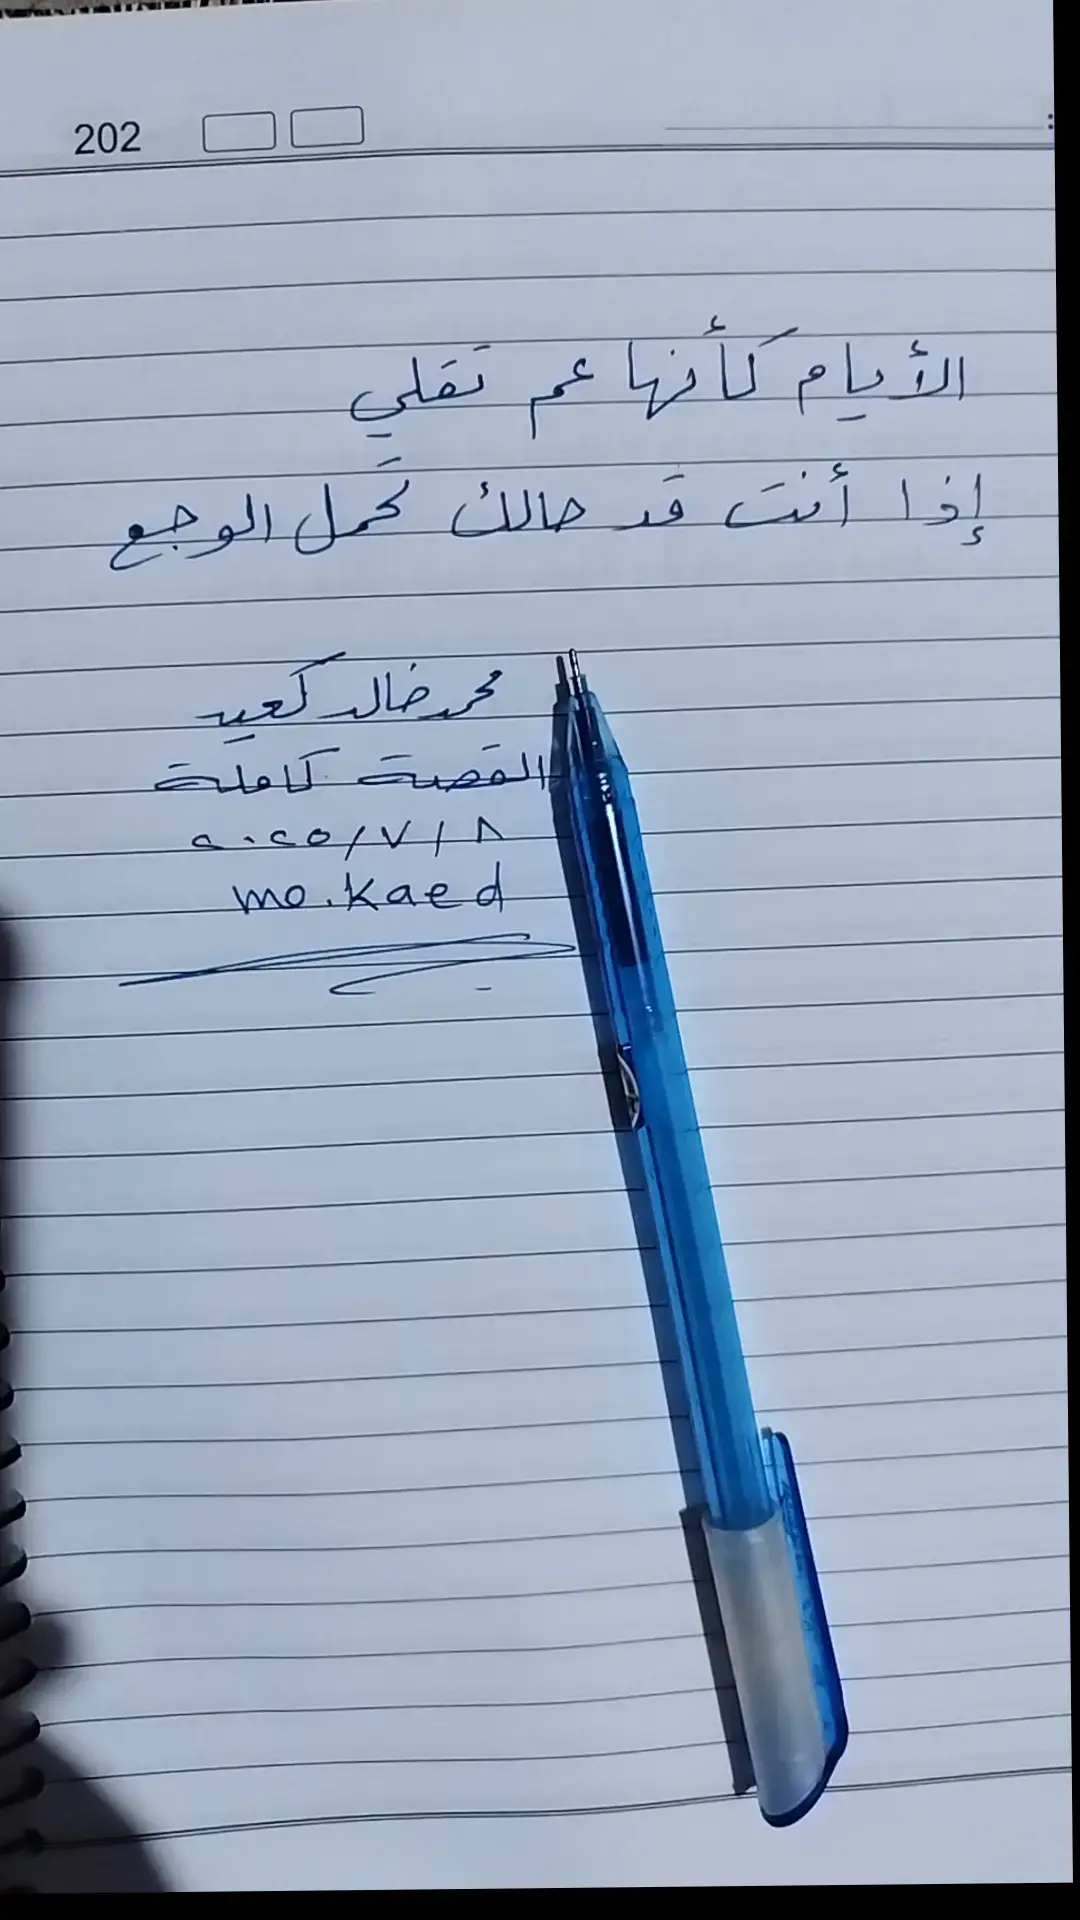 202
الأيام كأنها عم تقلي
إذا أنت قد حالك تحمل الوجع
محمد خالد كعيد
القصة كاملة
٢٠٢٥/٧/٨
mo.kaed